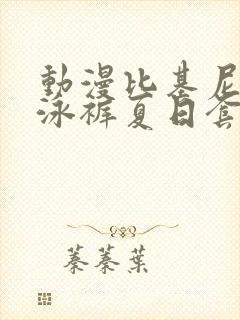 動漫比基尼
泳裤夏日套
蓁蓁葉